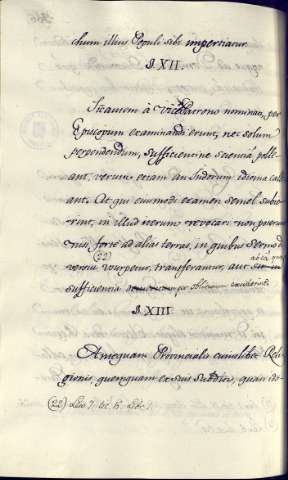 chum illius Populi sibi impertiatur.
§. XII.
Si autem à Vicepatrono nominati, per
Episcopum examinandi erunt, nec solum
perpendendum, sufficientine scientiâ polle
ant, verum etiam an Indorum idioma cal
leant. At qui eiusdem examen semel subie
rint, in illud iterum revocari non poterunt
nisi, forte ad alias terras, in quibus Sermo di
versus usurpetur, transferantur, aut
(22)
sufficientia
§. XIII
Antequam Provincialis cuiuslibet Reli
gionis, quemquam ex suis Subditis, quasi ido
(22) Leg. 7. tit. 6. Lib. 1.